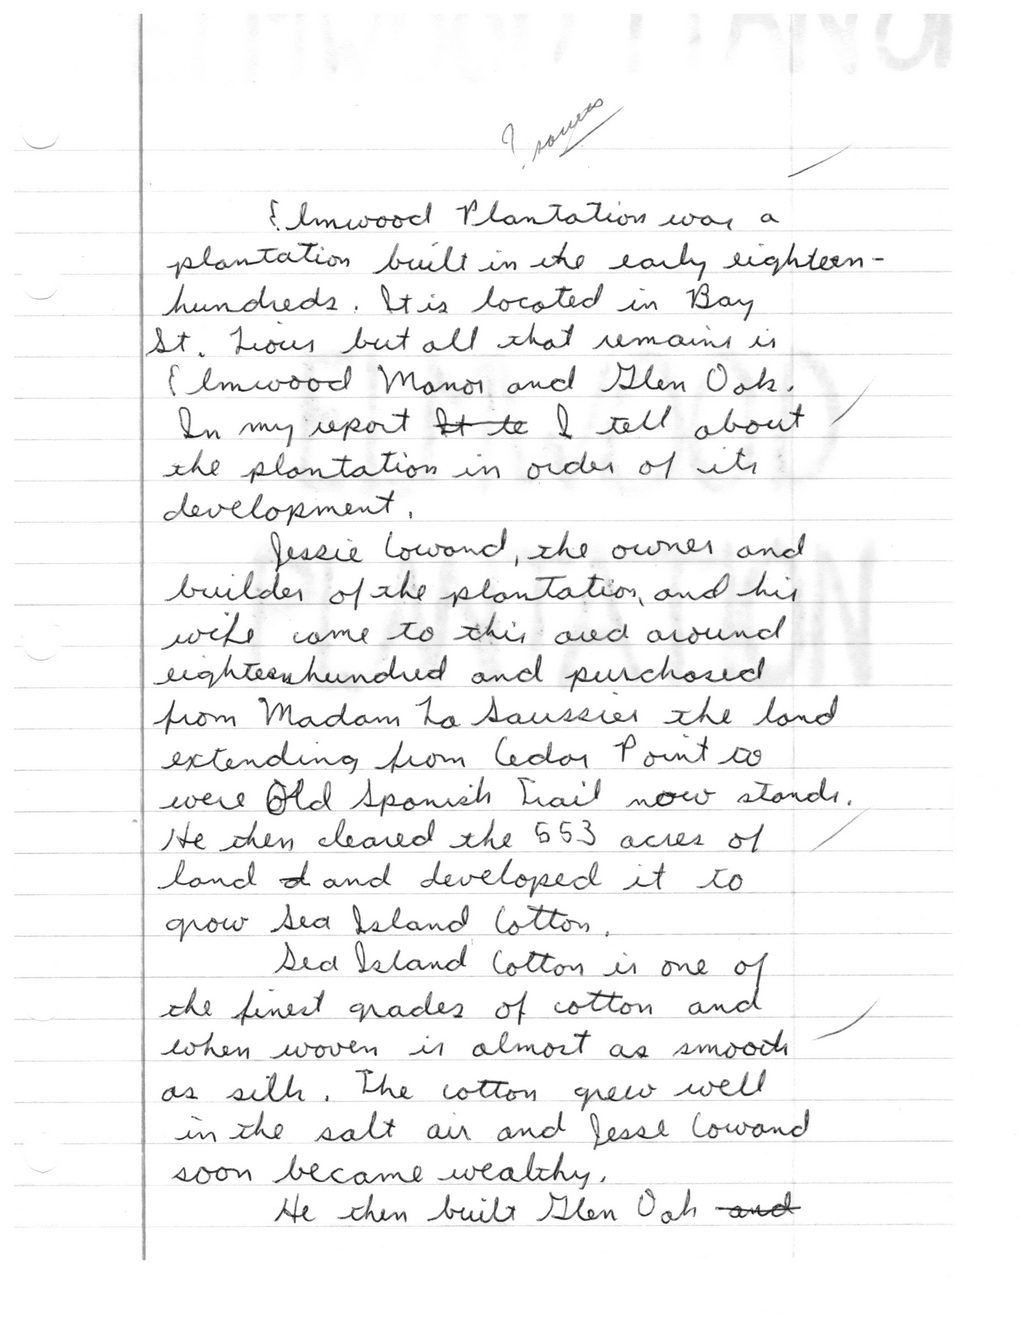 ? sources
Elmwood Plantation was a
plantation built in the early eighteen-
hundreds. It is located in Bay
St. Lious but all that remains is
Elmwood Manor and Glen Oak.
In my report It te I tell about
the plantation in order of its
development.
Jessie Cowand, the owner and
builder of the plantation, and his
wife came to this area around
eighteenhundred and purchased
from Madam La Saussier the land
extending from Cedar Point to
were Old Spanish Trail now stands.
He then cleared the 553 acres of
land d and developed it to
grow Sea Island Cotton.
Sea Island Cotton is one of
the finest grades of cotton and
when woven is almost as smooth
as silk. The cotton grew well
in the salt air and Jesse Cowand
soon became wealthy.
He then built Glen Oak and